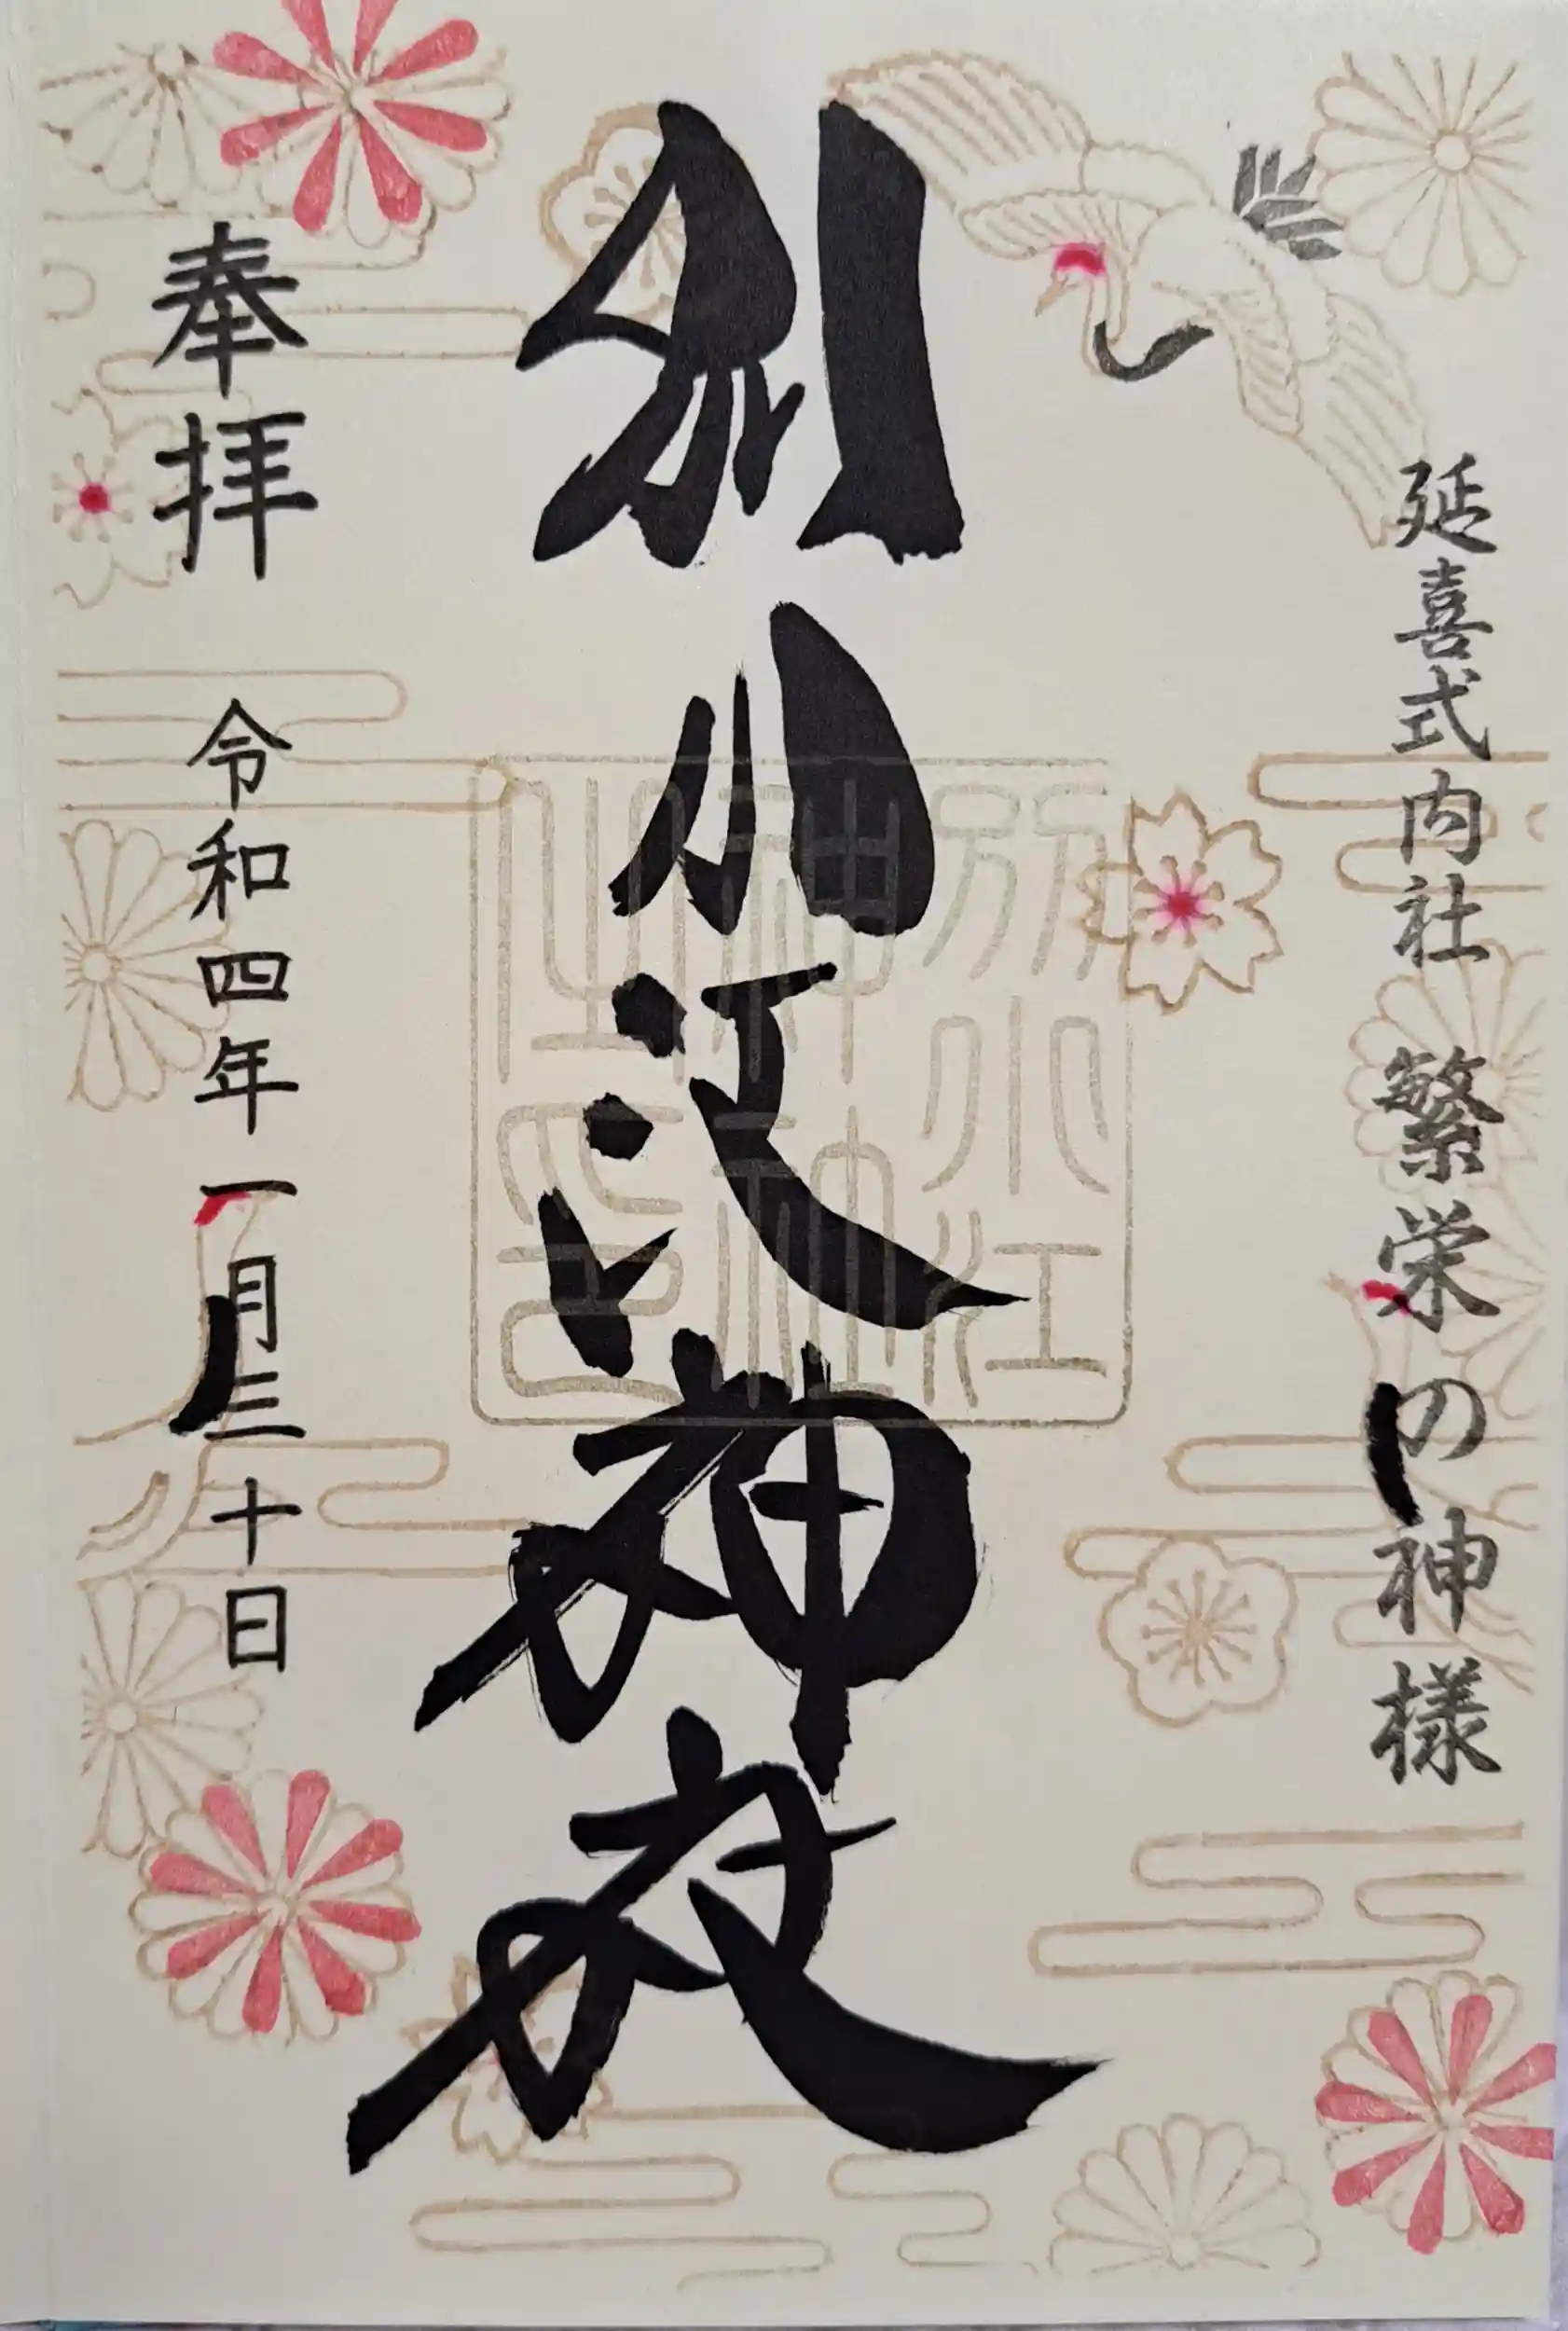 延喜式内社 繁栄の神様
別小江神社
別小江
神社
之印
奉拝 令和四年一月三十日